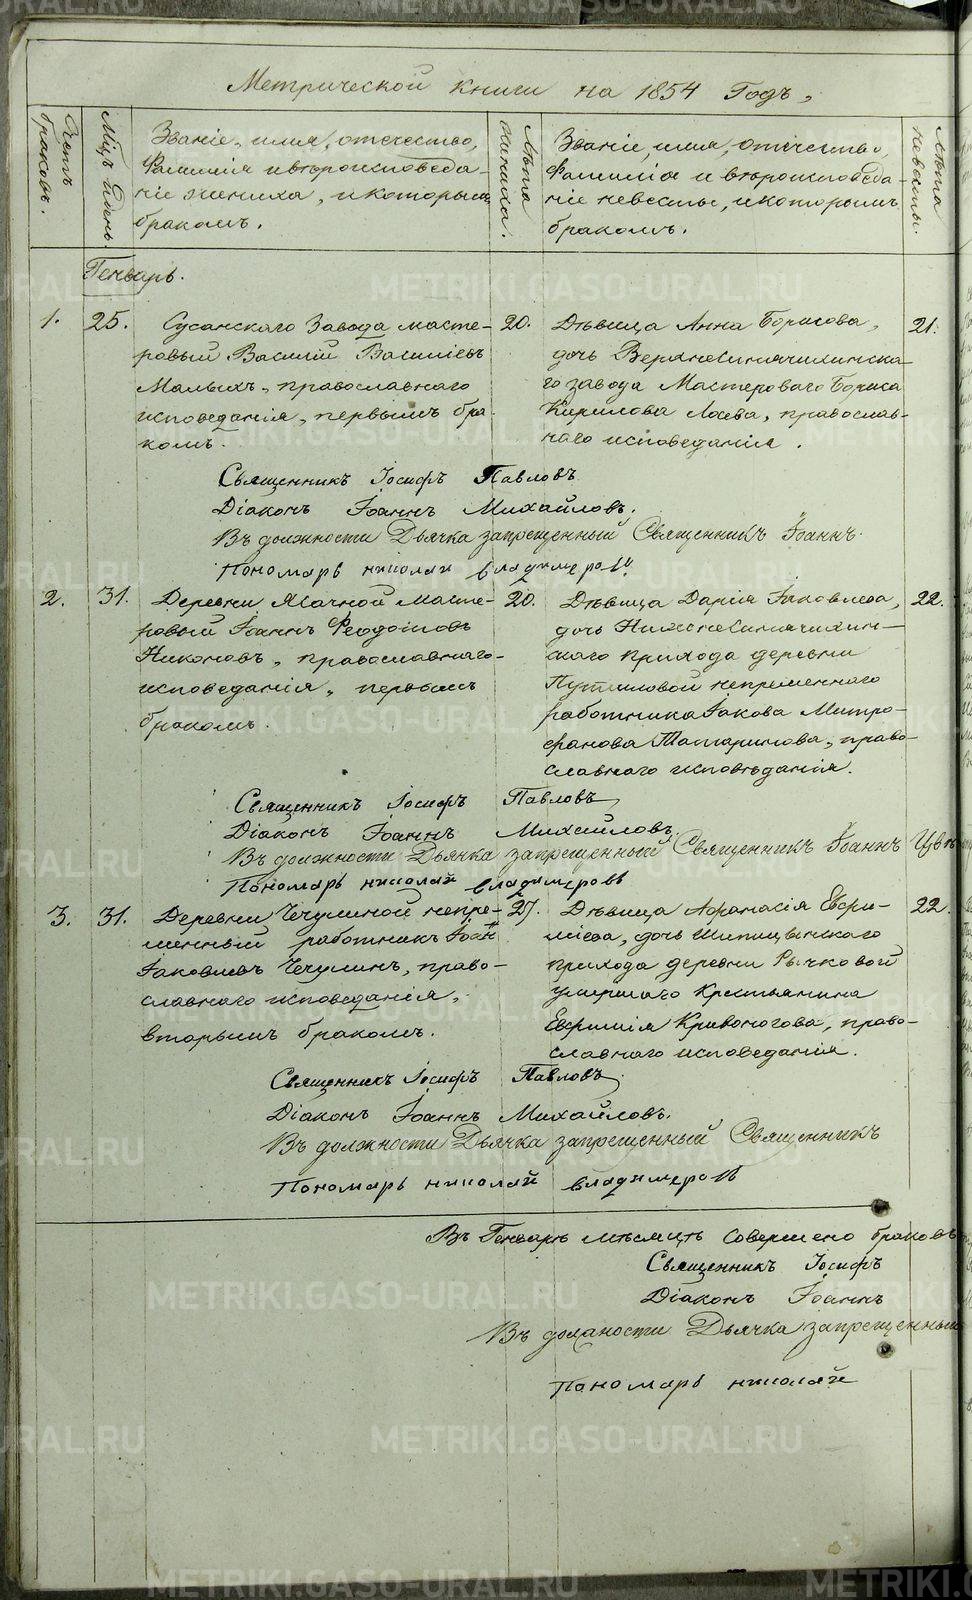 Метрической книги на 1854 Годъ,
Счетъ
браковъ.
Мцъ и день
Званіе, имя, отечество,
Фамилія и вѣроисповѣда-
ніе жениха, и которымъ
бракомъ.
Лѣта
жениха.
Званіе, имя, отечество,
Фамилія и вѣроисповѣда-
ніе невесты, и которымъ
бракомъ.
Лѣта
невѣсты.
Генварь.
1. 25. Сусанскаго Завода масте-
ровый Василій Василіевъ
Малыхъ, православнаго
исповеданія, первымъ бра-
комъ.
20.
Дѣвица Анна Борисова,
дочь Верхнесинячихинска-
го завода Мастероваго Бориса
Кирилова Лосева, православ-
наго исповеданія.
21.
Священникъ Іосифъ Павловъ
Діаконъ Іоаннъ Михайловъ.
Въ должности Дьячка запрещенный Священникъ Іоаннъ
Пономарь николай владимеровъ
2. 31. Деревни Ясачной масте-
ровый Іоаннъ Феодотовъ
Никоновъ, православнаго
исповеданія, первымъ
бракомъ.
20.
Дѣвица Дарія Іаковлева,
дочь Нижнесинячихин-
скаго прихода деревни
Путиловой непременнаго
работника Іакова Митро-
фанова Татаринова, право-
славнаго исповѣданія.
22.
Священникъ Іосифъ Павловъ
Діаконъ Іоаннъ Михайловъ.
Въ должности Дьячка запрещенный Священникъ Іоаннъ
Пономарь николай владимеровъ
3. 31. Деревни Чечулиной непре-
менный работникъ Іоаннъ
Іаковлевъ Чечулинъ, право-
славнаго исповеданія,
вторымъ бракомъ.
27.
Дѣвица Афанасія Евфи-
міева, дочь Шипицынскаго
прихода деревни Рычковой
умершаго Крестьянина
Евфимія Кривоногова, право-
славнаго исповеданія.
22.
Священникъ Іосифъ Павловъ
Діаконъ Іоаннъ Михайловъ.
Въ должности Дьячка запрещенный Священникъ
Пономарь николай владимеровъ
Въ Генварѣ мѣсяцѣ совершено браковъ
Священникъ Іосифъ
Діаконъ Іоаннъ
Въ должности Дьячка запрещенный
Пономарь николай
METRIKI.GASO-URAL.RU